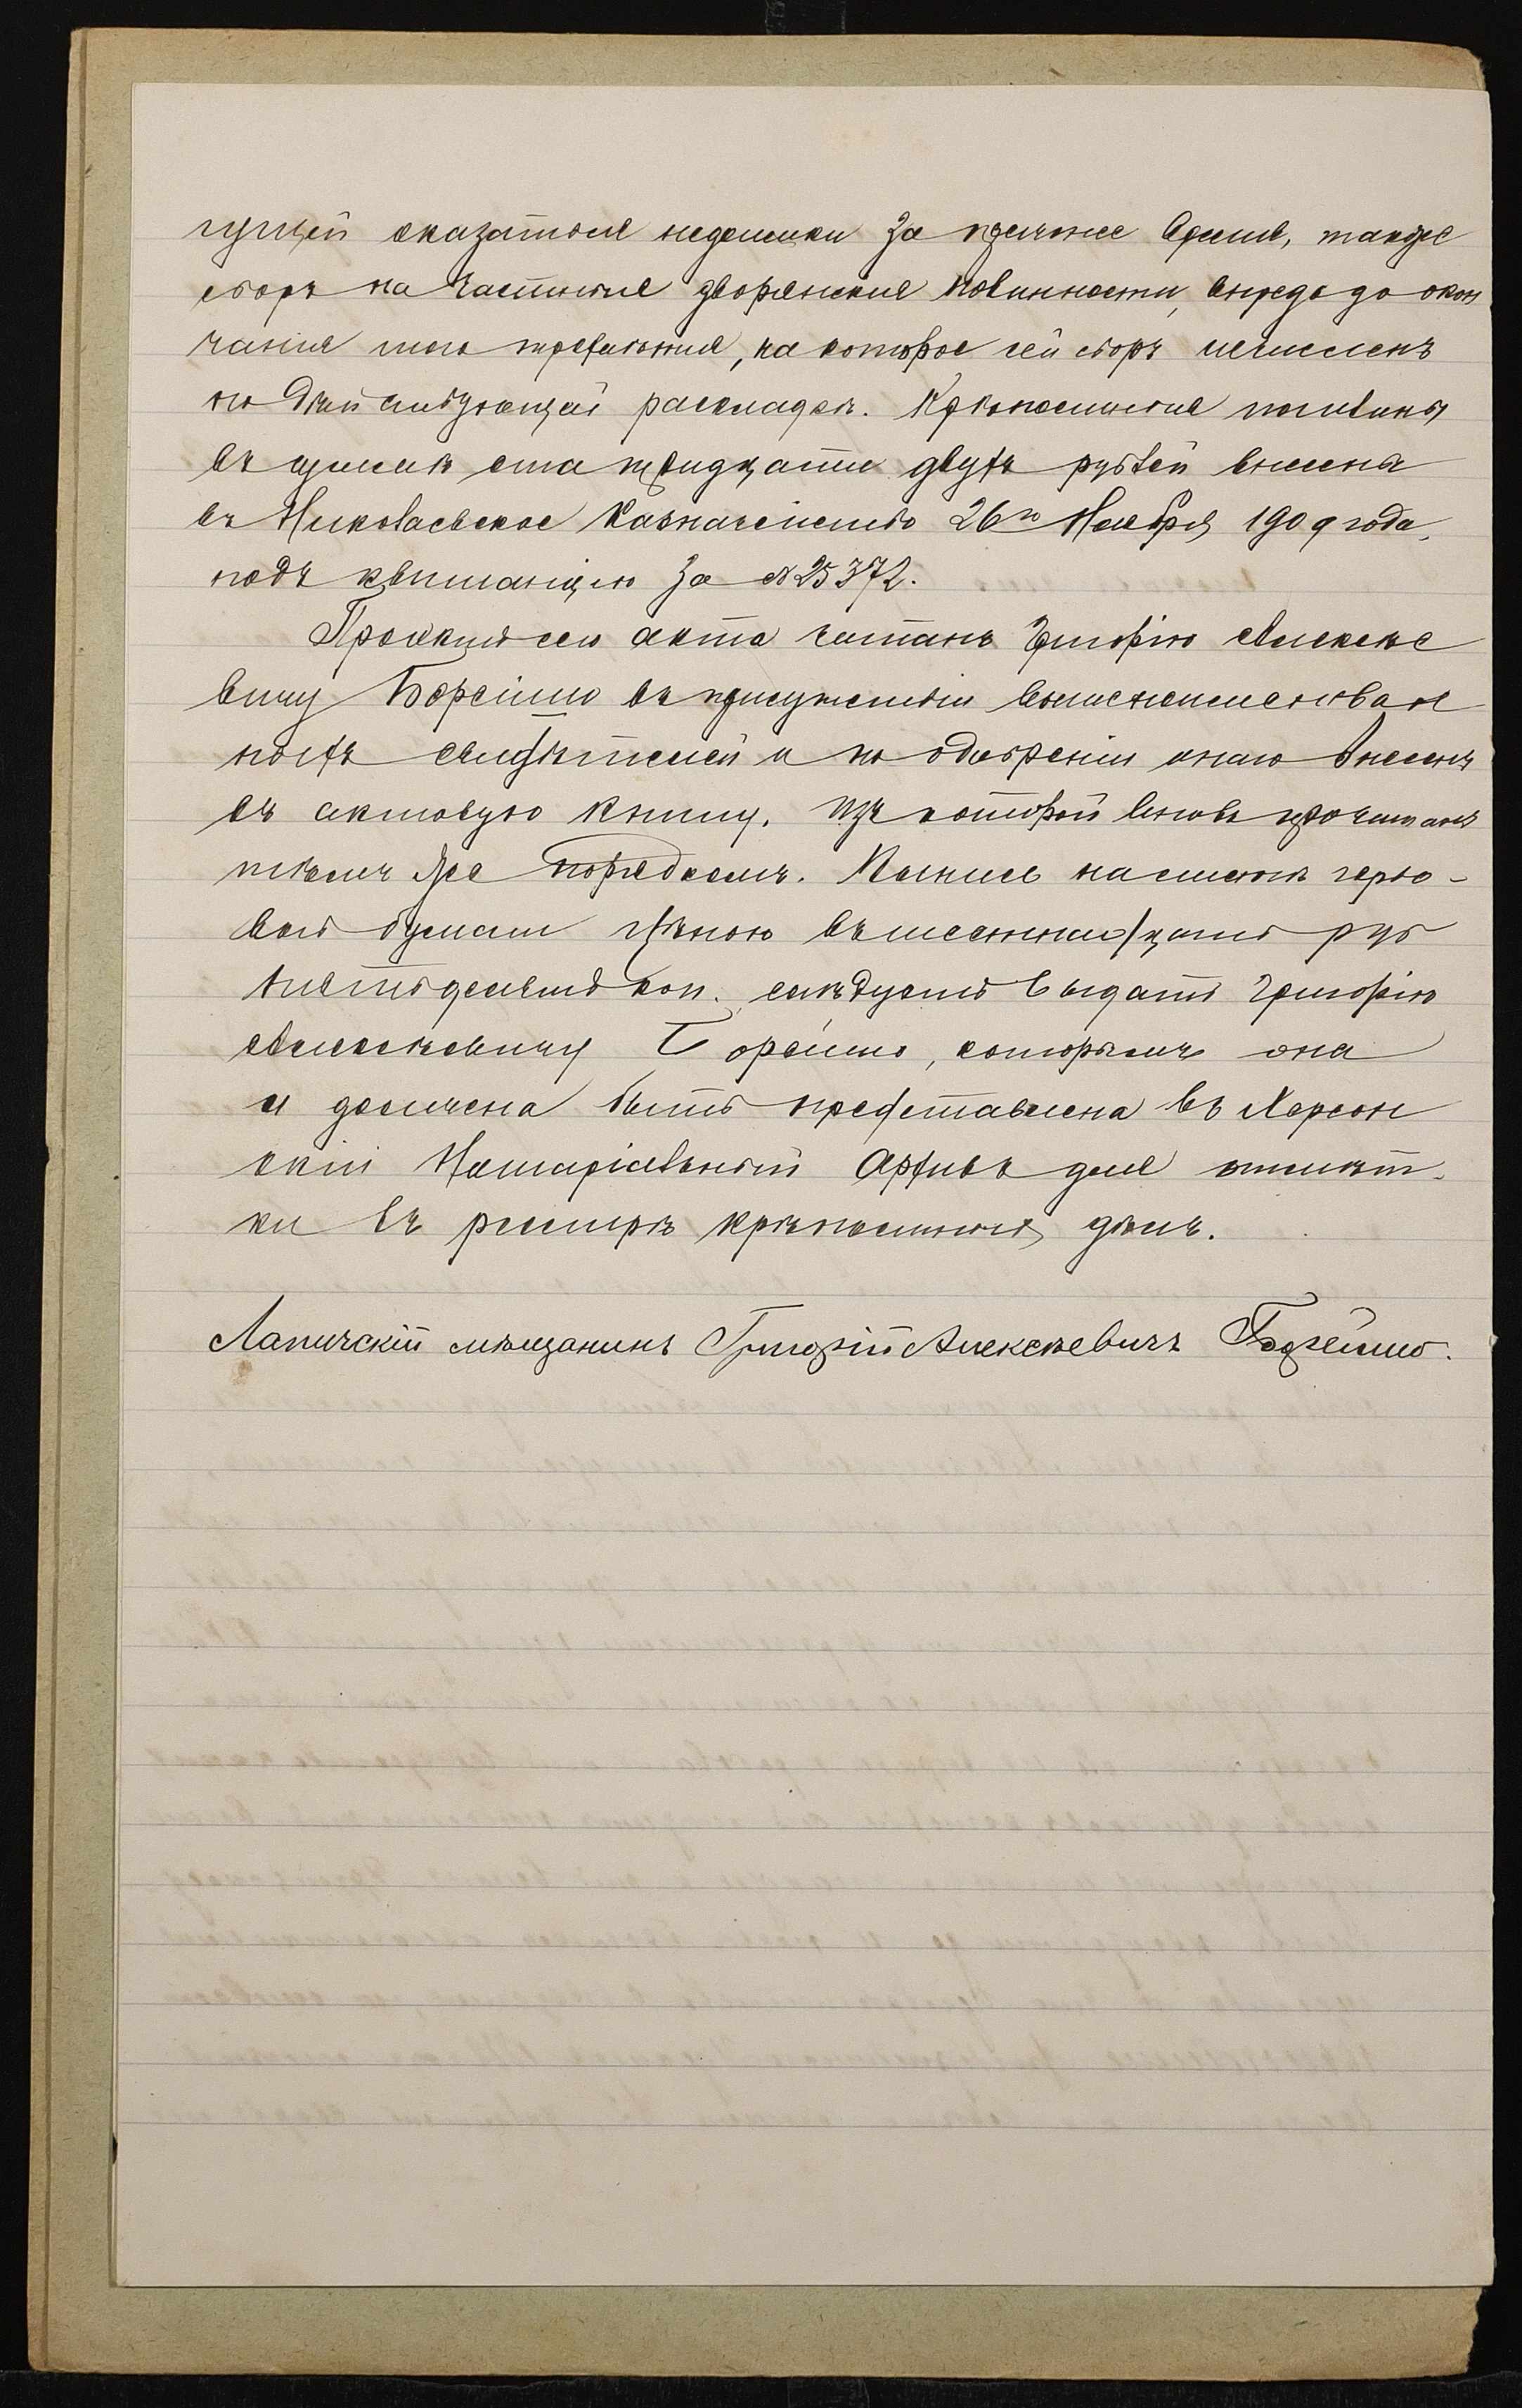 гущей оказаться недоимки за прежнее время, также
сборъ на частныя дворянскія повинности, впредь до окон
чанія того трехлѣтія, на которое сей сборъ исчисленъ
по дѣйствующей раскладкѣ. Крѣпостныя пошлины
въ суммѣ ста тридцати двухъ рублей внесены
въ Николаевское Казначейство 26го Ноября 1909 года,
подъ квитанцію за № 25372.
Проектъ сего акта читанъ Григорію Алексѣе
вичу въ присутствіи вышепоименован
ныхъ свидѣтелей и по одобреніи онаго внесенъ
въ актовую книгу, изъ которой вновь прочитанъ
тѣмъ же порядкомъ. Выпись на листѣ гербо-
вой бумаги цѣною въ руб
пятьдесятъ коп. слѣдуетъ выдать Григорію
Алексѣевичу которымъ она
и должна быть представлена въ Херсон
скій Нотаріальный Архивъ для отмѣт-
ки въ реестрѣ крѣпостныхъ дѣлъ.
мѣщанинъ Григорій Алексѣевичъ